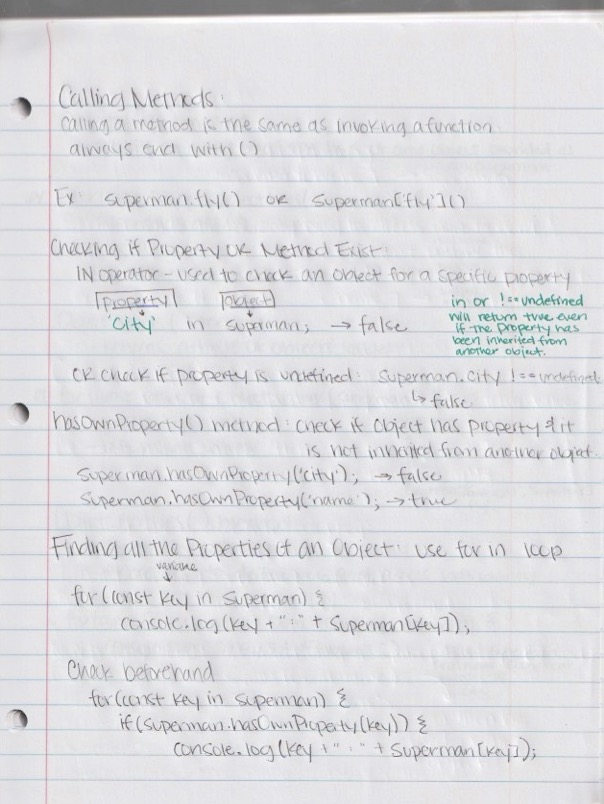 Calling Methods:
Calling a method is the same as invoking a function
always end with ()
Ex: superman.fly() OR superman['fly']()
Checking if Property OR Method Exist:
IN operator - used to check an object for a specific property
property object
'city' in superman; → false
in or !== undefined
will return true even
if the property has
been inherited from
another object.
OR check if property is undefined: superman.city !== undefined;
↳ false
hasOwnProperty() method: check if object has property & it
is not inherited from another object.
Superman.hasOwnProperty('city'); → false
Superman.hasOwnProperty('name'); → true
Finding all the Properties of an Object: use for in loop
variable
for (const key in superman) {
console.log(key + ":" + Superman[key]);
Check beforehand
for (const key in superman) {
if (superman.hasOwnProperty(key)) {
console.log(key + ":" + Superman[key]);